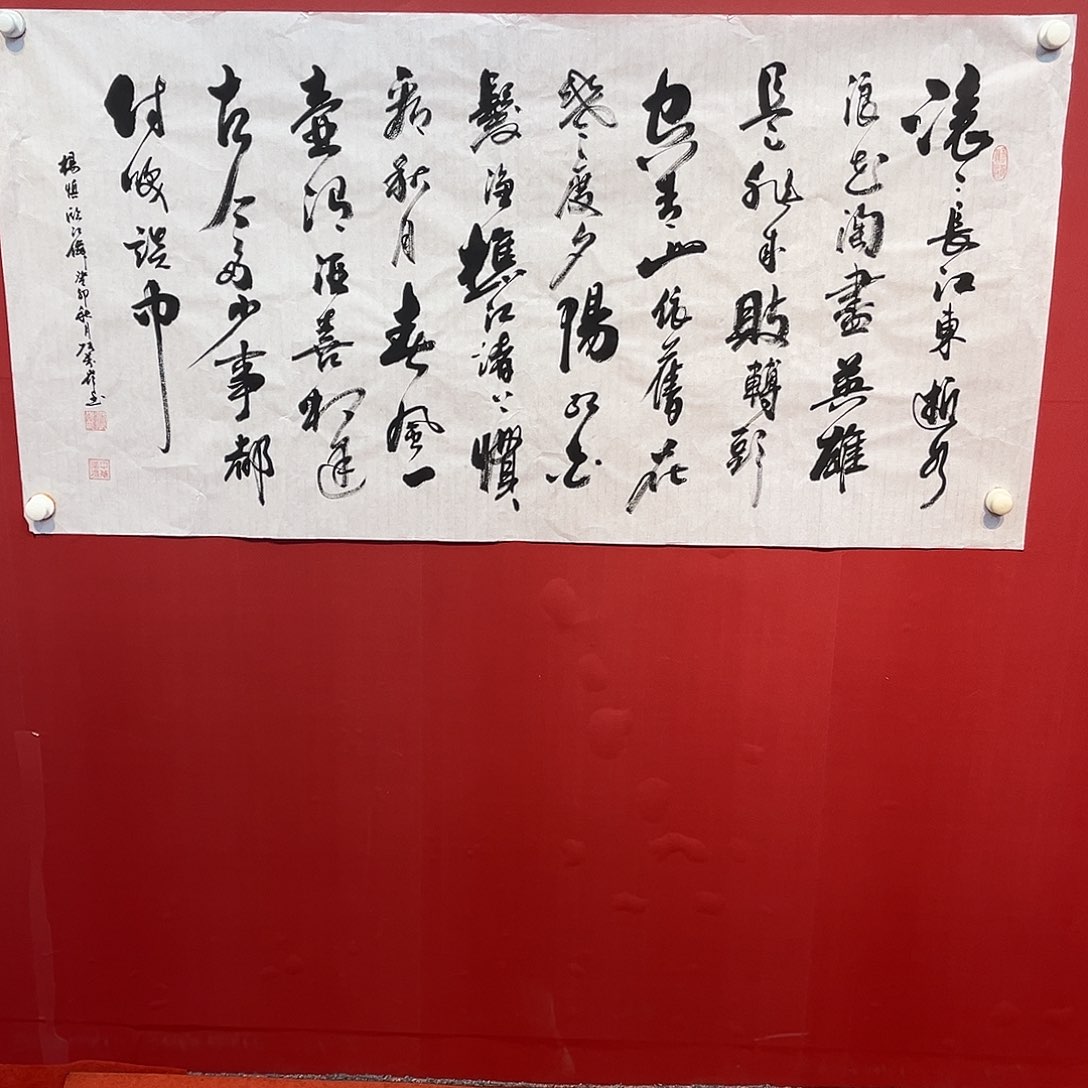 滚々長江東逝水
浪花淘盡英雄
是非成敗轉頭
空青山依舊在
幾度夕陽紅白
髮漁樵江渚上慣
看秋月春風一
壺濁酒喜相逢
古今多少事都
付笑談中
楊慎臨江仙 癸卯秋月